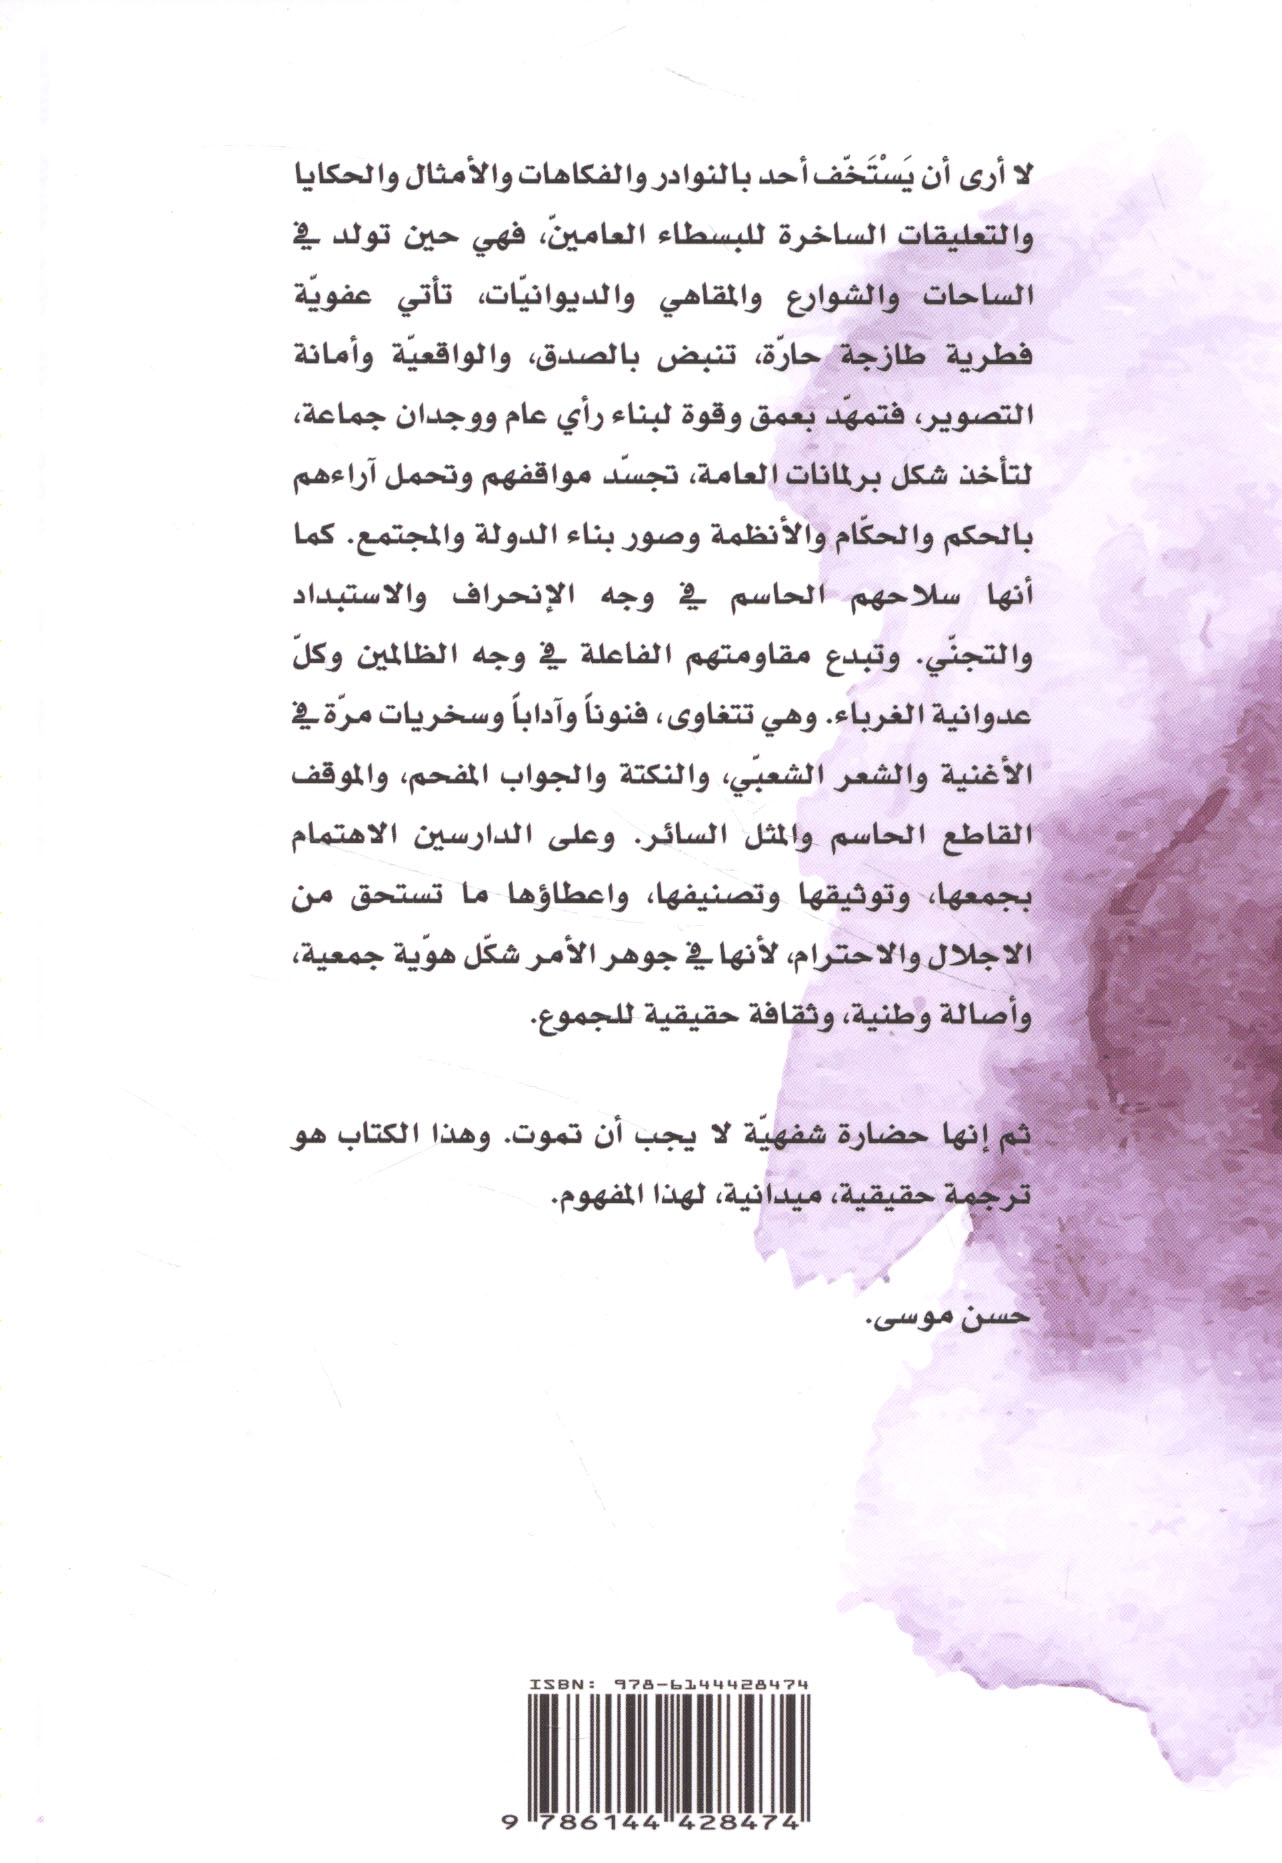 لا أرى أن يَسْتَخّف أحد بالنوادر والفكاهات والأمثال والحكايا
والتعليقات الساخرة للبسطاء العامينّ، فهي حين تولد في
الساحات والشوارع والمقاهي والديوانيّات، تأتي عفويّة
فطرية طازجة حارّة، تنبض بالصدق، والواقعيّة وأمانة
التصوير، فتمهّد بعمق وقوة لبناء رأي عام ووجدان جماعة،
لتأخذ شكل برلمانات العامة، تجسّد مواقفهم وتحمل آراءهم
بالحكم والحكّام والأنظمة وصور بناء الدولة والمجتمع. كما
أنها سلاحهم الحاسم في وجه الإنحراف والاستبداد
والتجنّي. وتبدع مقاومتهم الفاعلة في وجه الظالمين وكلّ
عدوانية الغرباء. وهي تتغاوى، فنوناً وآداباً وسخريات مرّة في
الأغنية والشعر الشعبّي، والنكتة والجواب المفحم، والموقف
القاطع الحاسم والمثل السائر. وعلى الدارسين الاهتمام
بجمعها، وتوثيقها وتصنيفها، واعطاؤها ما تستحق من
الاجلال والاحترام، لأنها في جوهر الأمر شكّل هوّية جمعية،
وأصالة وطنية، وثقافة حقيقية للجموع.
ثم إنها حضارة شفهيّة لا يجب أن تموت. وهذا الكتاب هو
ترجمة حقيقية، ميدانية، لهذا المفهوم.
حسن موسى.
ISBN: 978-6144428474
9 786144 428474